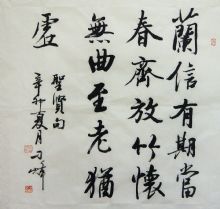 蘭信有期當
春齊放竹懷
無曲至老猶
虛
聖賢句
辛卯夏月